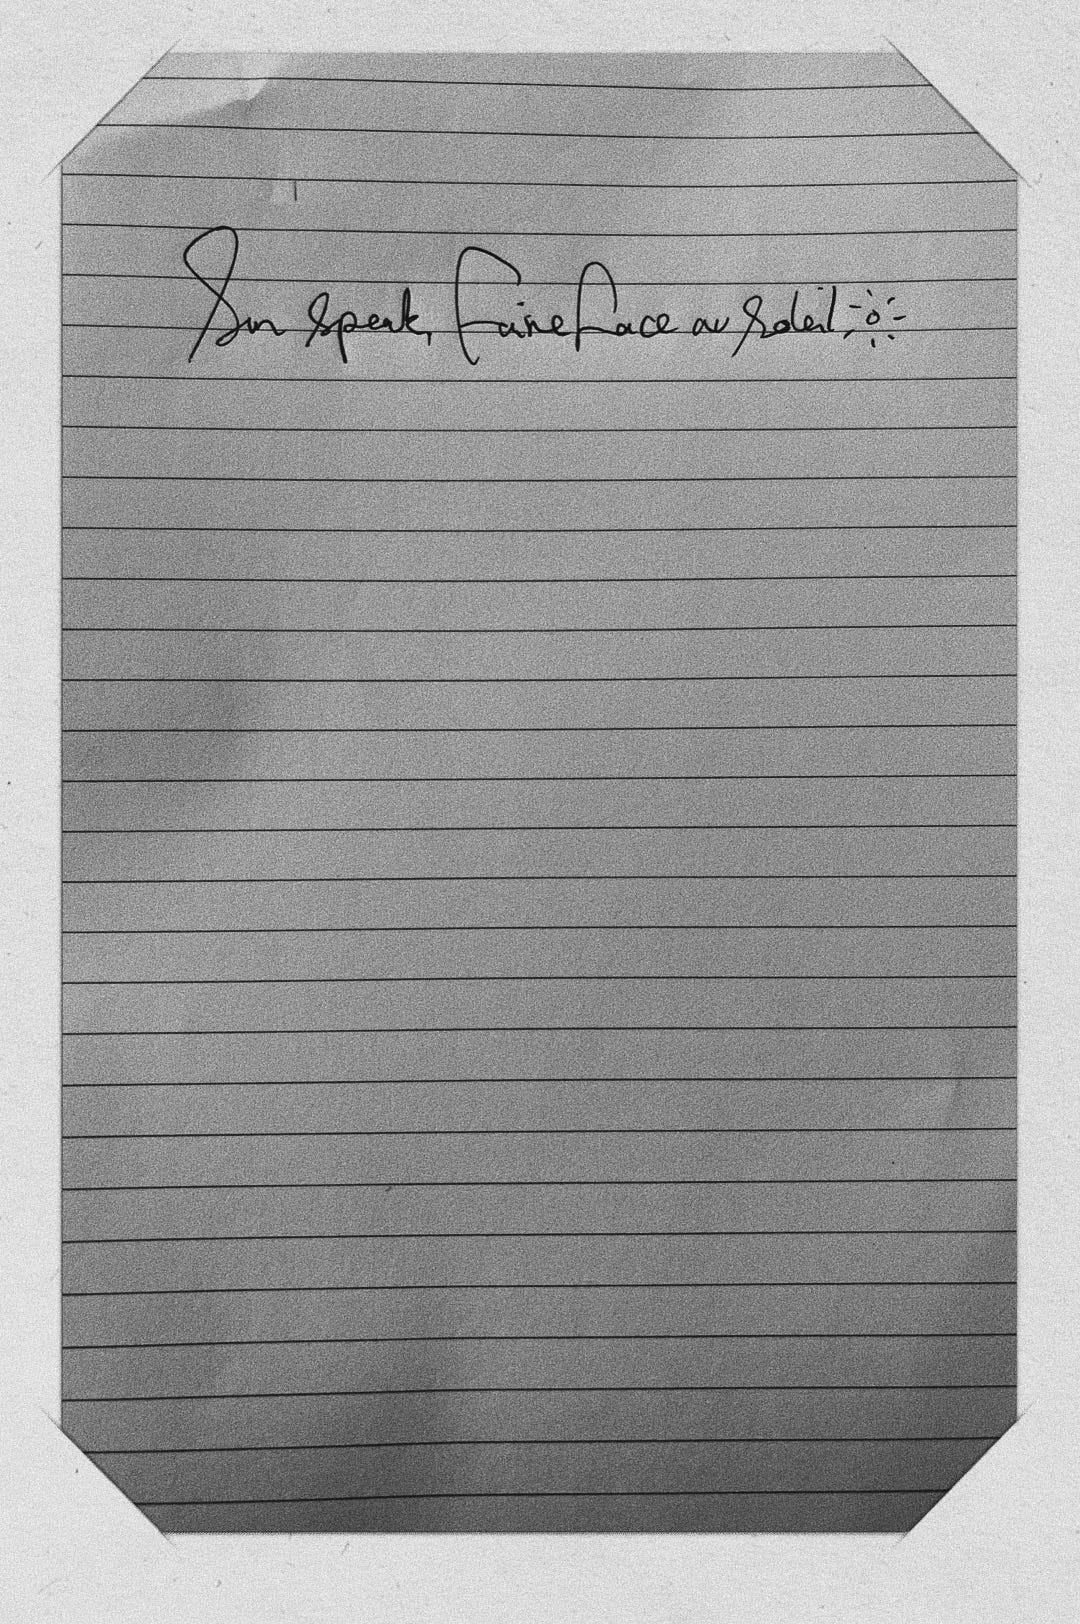 Sun speak, Faire face au soleil